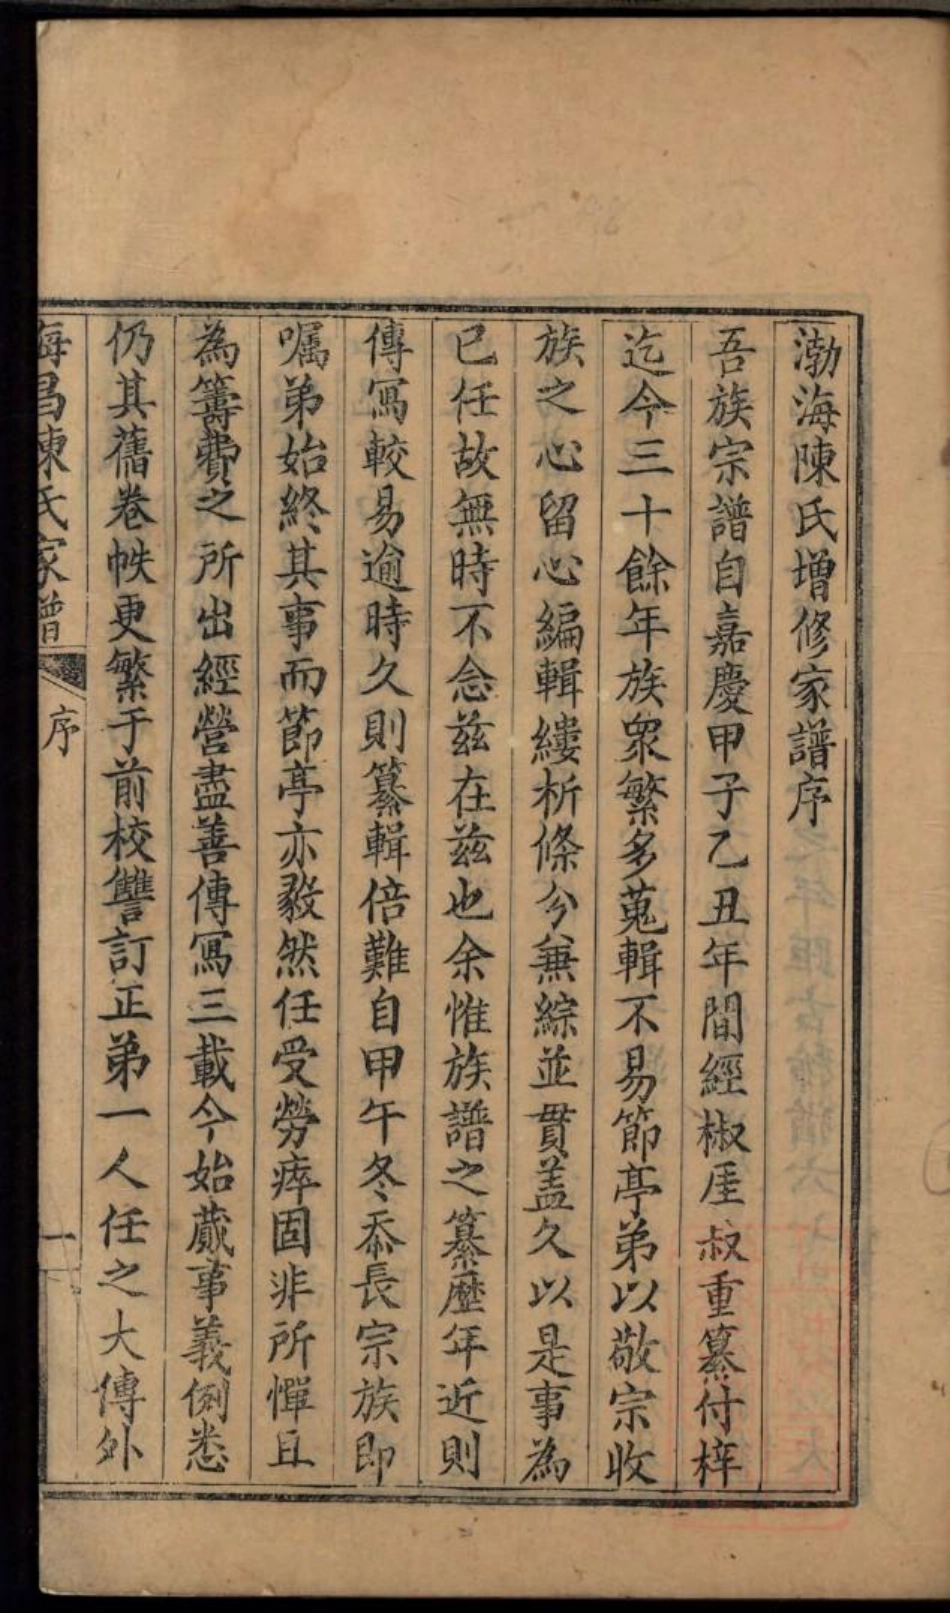 渤海陳氏增修家譜序
吾族宗譜自嘉慶甲子乙丑年間經椒厓叔重纂付梓
迄今三十餘年族衆繁多蒐輯不易節亭弟以敬宗收
族之心留心編輯縷析條分兼綜並貫盖久以是事為
已任故無時不念茲在茲也余惟族譜之纂歷年近則
傳寫較易逾時久則纂輯倍難自甲午冬忝長宗族即
囑弟始終其事而節亭亦毅然任受勞瘁固非所憚且
為籌費之所出經營盡善傳寫三載今始蕆事義例悉
仍其舊卷帙更繁于前校讐訂正弟一人任之大傳外
海昌陳氏家譜 序 一